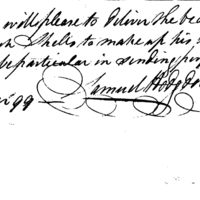 will please to deliver the
Shells to make up his
be particular in sending
Samuel Hodgdon
99